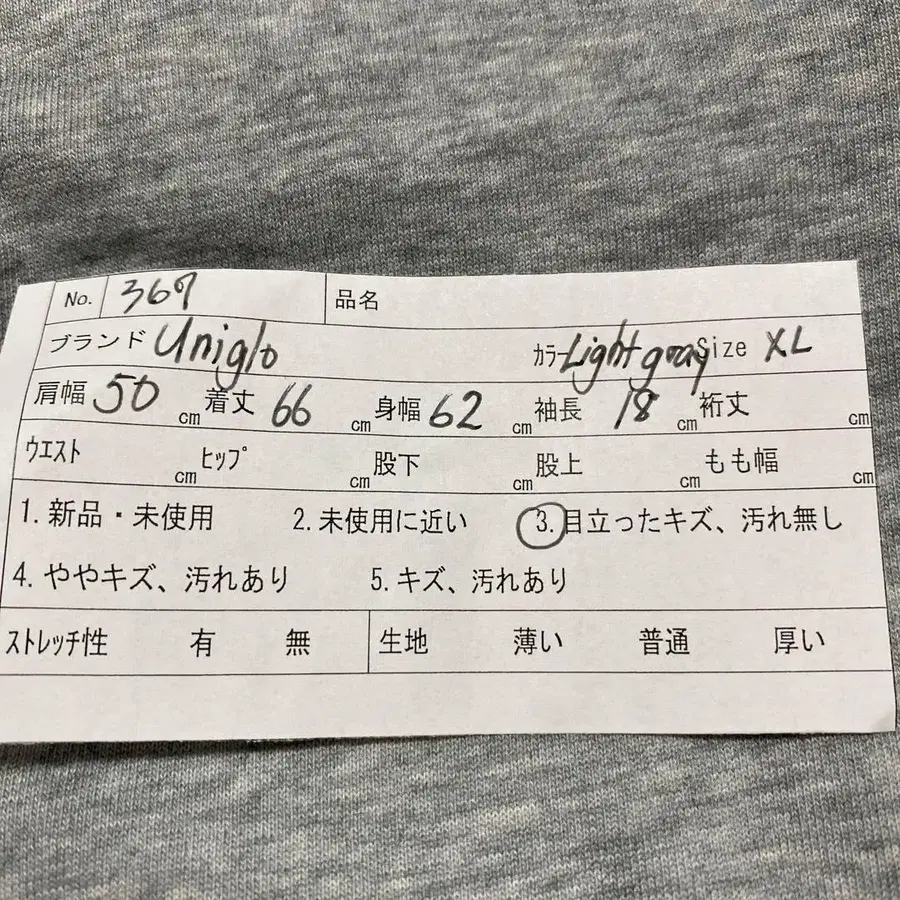 No. 367 品名
ブランド Uniqlo カラー Light gray Size XL
肩幅 50 cm 着丈 66 cm 身幅 62 cm 袖長 18 cm 裄丈 cm
ウエスト cm ヒップ cm 股下 cm 股上 cm もも幅 cm
1. 新品・未使用 2. 未使用に近い 3. 目立ったキズ、汚れ無し
4. ややキズ、汚れあり 5. キズ、汚れあり
ストレッチ性 有 無 生地 薄い 普通 厚い